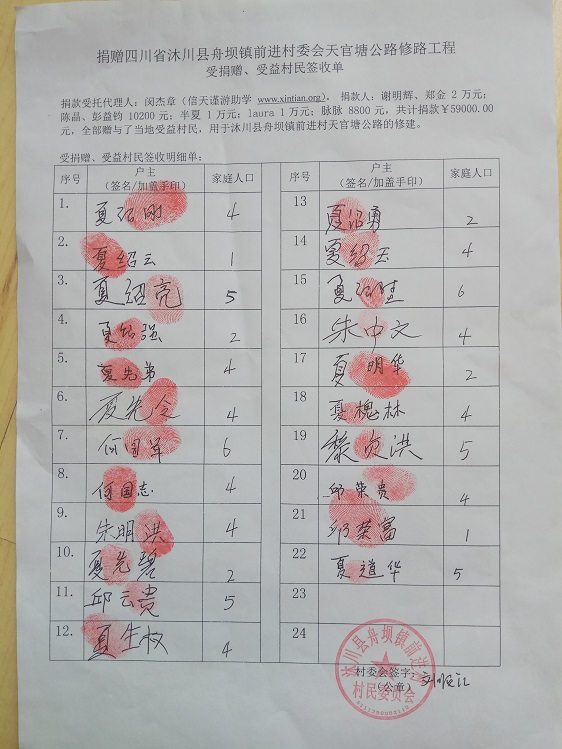 捐赠四川省沐川县舟坝镇前进村委会天官塘公路修路工程
受捐赠、受益村民签收单
捐款受托代理人：闵杰章（信天谨游助学 www.xintian.org），捐款人：谢明辉、郑金 2 万元；
陈晶、彭益钧 10200 元；半夏 1 万元；laura 1 万元；脉脉 8800 元，共计捐款￥59000.00
元，全部赠与了当地受益村民，用于沐川县舟坝镇前进村天官塘公路的修建。
受捐赠、受益村民签收明细单：
序号 户主（签名/加盖手印） 家庭人口
1. 夏绍刚 4
2. 夏绍云 1
3. 夏绍亮 5
4. 夏绍强 2
5. 夏先弟 4
6. 夏先令 4
7. 何国军 6
8. 何国志 4
9. 朱明洪 4
10. 夏先碧 2
11. 邱云贵 5
12. 夏生权 4
序号 户主（签名/加盖手印） 家庭人口
13 夏绍勇 2
14 夏绍玉 4
15 夏绍生 6
16 朱中文 4
17 夏明华 2
18 夏槐林 4
19 黎贞洪 5
20 邱荣贵 4
21 邱荣富 1
22 夏道华 5
23
24
村委会签字：
（公章）
沐川县舟坝镇前进村
村民委员会